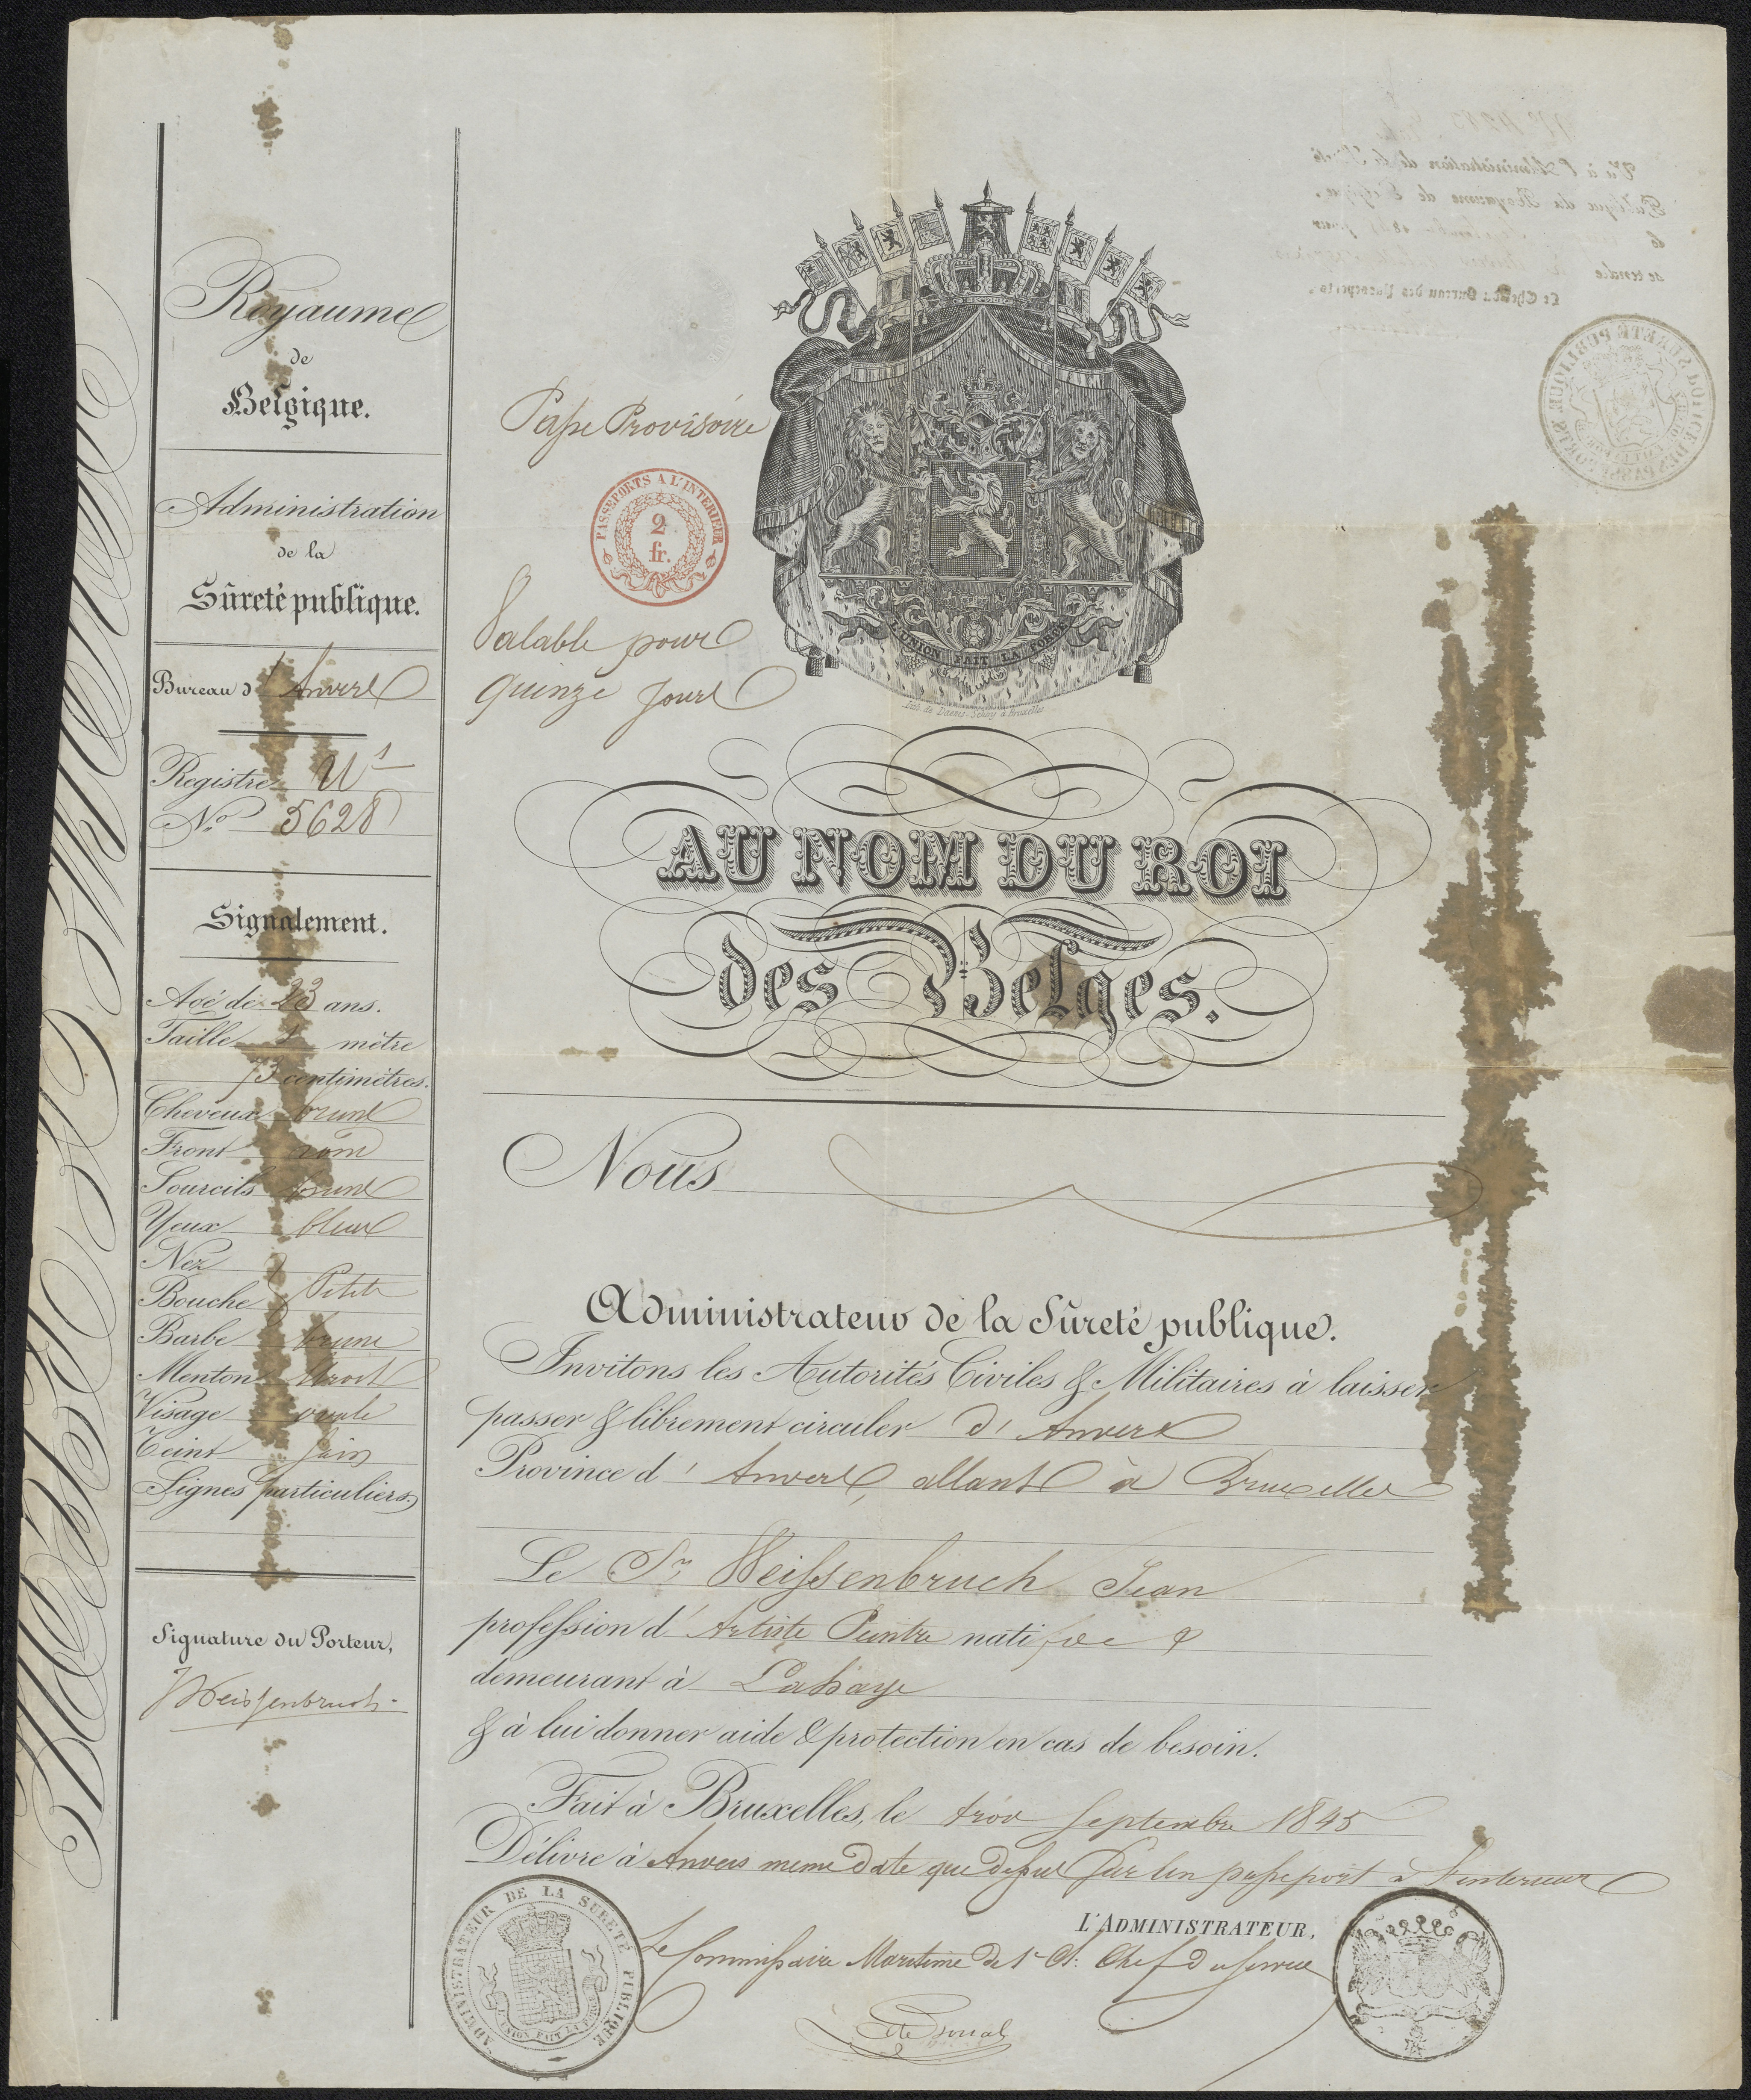 Royaume
de
Belgique.
Administration
de la
Sûreté publique.
Bureau d'Anvers
Registre U 1
No. 5628
Signalement.
Agé de 23 ans.
Taille 1 mètre
73 centimètres.
Cheveux bruns
Front rond
Sourcils bruns
Yeux bleus
Nez
Bouche Petite
Barbe brune
Menton
Visage ovale
Teint sain
Signes particuliers
Signature du Porteur,
JWeissenbruch.
Passe Provisoire
PASSEPORTS A L'INTERIEUR
2
fr.
Valable pour
quinze jours
L'UNION FAIT LA FORCE
Lith. de Dasais-Schoy à Bruxelles
AU NOM DU ROI
des Belges.
Nous
Administrateur de la Sûreté publique.
Invitons les Autorités Civiles & Militaires à laisser
passer & librement circuler d'Anvers
Province d'Anvers, allant à Bruxelles
Le Sr. Weissenbruch Jean
profession d'Artiste Peintre natif de &
demeurant à Lahaye
& à lui donner aide & protection en cas de besoin.
Fait à Bruxelles, le trois Septembre 1845
Délivré à Anvers meme date que dessus sur un passeport à l'interieur
L'ADMINISTRATEUR,
Le Commissaire Maritime de 1e Cl. Chef du service
ADMINISTRATEUR DE LA SURETÉ PUBLIQUE
L'UNION FAIT LA FORCE